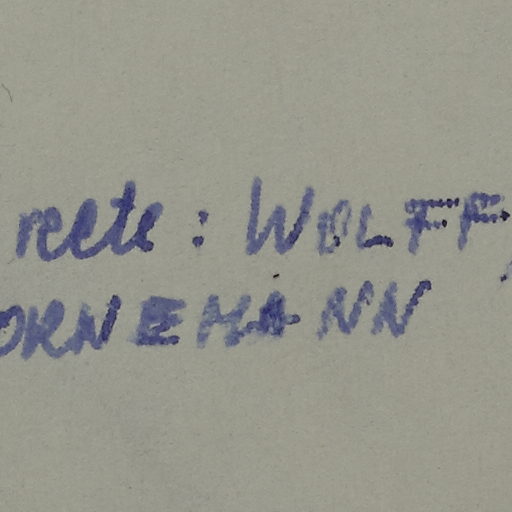 recte: WOLFF,
ORNEMANN